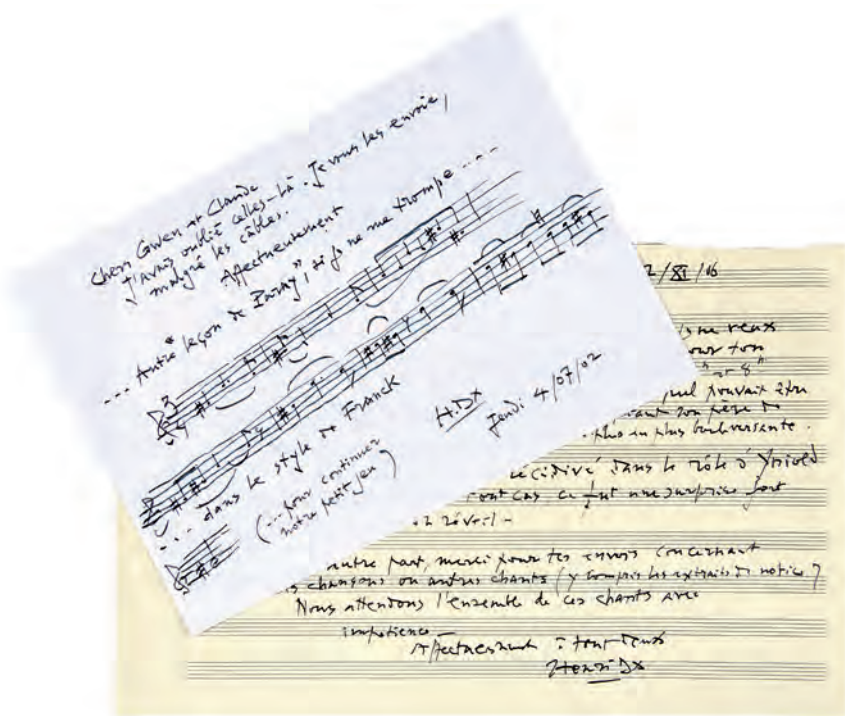 Chers Gwen et Claude
J'avais oublié celles-là. Je vous les envoie,
malgré les câbles.
Affectueusement
--- Autre leçon de Paray, si je ne me trompe ----
--- dans le style de Franck
(... pour continuer
notre petit jeu)
H.DX
Jeudi 4/07/02
/XI/06
veux
pour ton
8"
pouvait être
son père de
plus en plus bouleversante.
récidivé dans le rôle d'Yniold
tout cas, ce fut une surprise fort
réveil -
autre part, merci pour tes envois concernant
chansons ou autres chants (y compris les extraits de notice)
Nous attendons l'ensemble de ces chants avec
impatience -
Affectueusement à tous deux
Henri DX